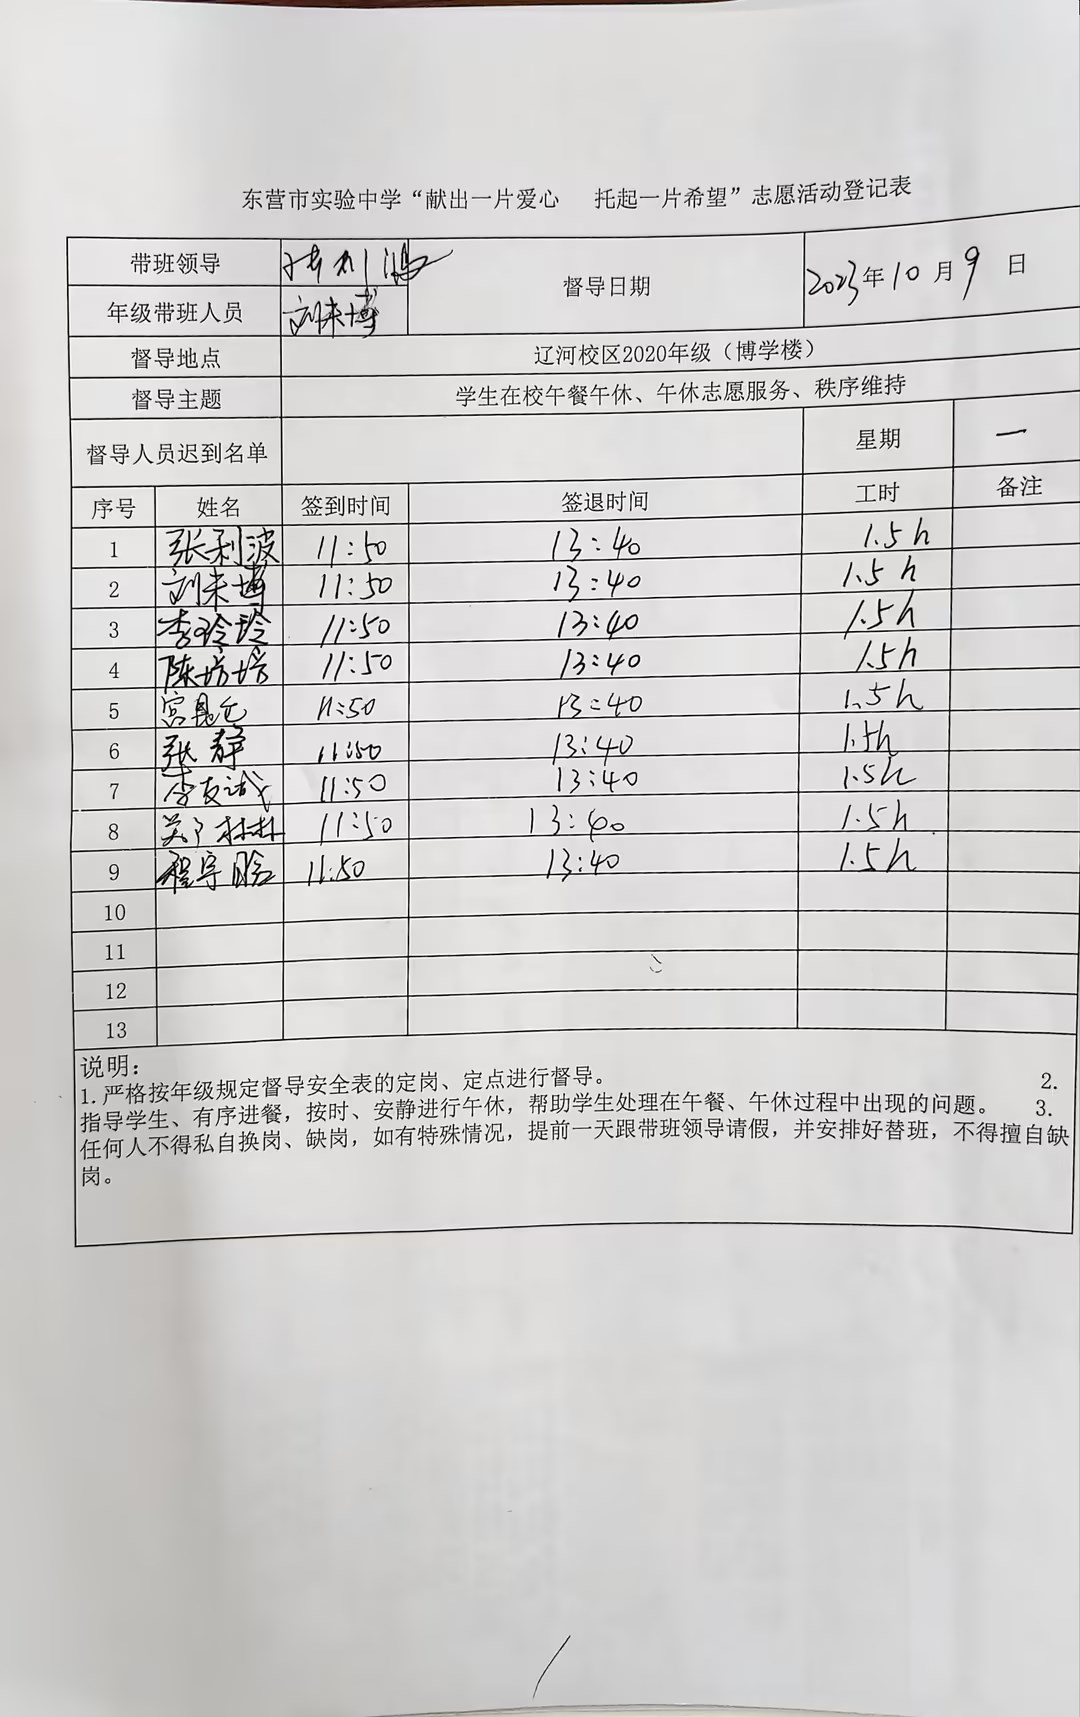 东营市实验中学“献出一片爱心 托起一片希望”志愿活动登记表
带班领导 督导日期 2023年10月9日
年级带班人员 刘来博
督导地点 辽河校区2020年级（博学楼）
督导主题 学生在校午餐午休、午休志愿服务、秩序维持
督导人员迟到名单 星期 一
序号 姓名 签到时间 签退时间 工时 备注
1 张利波 11:50 13:40 1.5h
2 刘来博 11:50 13:40 1.5h
3 李玲玲 11:50 13:40 1.5h
4 陈培培 11:50 13:40 1.5h
5 宫昆仑 11:50 13:40 1.5h
6 张静 11:50 13:40 1.5h
7 李友诚 11:50 13:40 1.5h
8 林林 11:50 13:40 1.5h
9 程宇晗 11:50 13:40 1.5h
10
11
12
13
说明：
1.严格按年级规定督导安全表的定岗、定点进行督导。 2.
指导学生、有序进餐，按时、安静进行午休，帮助学生处理在午餐、午休过程中出现的问题。 3.
任何人不得私自换岗、缺岗，如有特殊情况，提前一天跟带班领导请假，并安排好替班，不得擅自缺
岗。